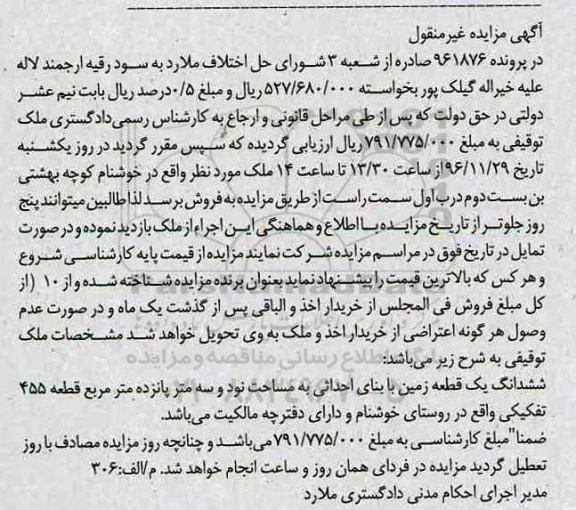 آگهی مزایده غیرمنقول
در پرونده ۹۶۱۸۷۶ صادره از شعبه ۳ شورای حل اختلاف ملارد به سود رقیه ارجمند لاله
علیه خیراله گیلک پور بخواسته ۵۲۷/۶۸۰/۰۰۰ ریال و مبلغ ۰/۵درصد ریال بابت نیم عشر
دولتی در حق دولت که پس از طی مراحل قانونی و ارجاع به کارشناس رسمی دادگستری ملک
توقیفی به مبلغ ۷۹۱/۷۷۵/۰۰۰ ریال ارزیابی گردیده که سپس مقرر گردید در روز یکشنبه
تاریخ ۹۶/۱۱/۲۹ از ساعت ۱۳/۳۰ تا ساعت ۱۴ ملک مورد نظر واقع در خوشنام کوچه بهشتی
بن بست دوم درب اول سمت راست از طریق مزایده به فروش برسد لذا طالبین میتوانند پنج
روز جلوتر از تاریخ مزایده با اطلاع و هماهنگی این اجرا از ملک بازدید نموده و در صورت
تمایل در تاریخ فوق در مراسم مزایده شرکت نمایند مزایده از قیمت پایه کارشناسی شروع
و هر کس که بالاترین قیمت را پیشنهاد نماید بعنوان برنده مزایده شناخته شده و از ۱۰ (از
کل مبلغ فروش فی المجلس از خریدار اخذ و الباقی پس از گذشت یک ماه و در صورت عدم
وصول هر گونه اعتراضی از خریدار اخذ و ملک به وی تحویل خواهد شد مشخصات ملک
توقیفی به شرح زیر می‌باشد:
ششدانگ یک قطعه زمین با بنای احداثی به مساحت نود و سه متر پانزده متر مربع قطعه ۴۵۵
تفکیکی واقع در روستای خوشنام و دارای دفترچه مالکیت می‌باشد.
ضمنا"مبلغ کارشناسی به مبلغ ۷۹۱/۷۷۵/۰۰۰ می‌باشد و چنانچه روز مزایده مصادف با روز
تعطیل گردید مزایده در فردای همان روز و ساعت انجام خواهد شد. م/الف:۳۰۶
مدیر اجرای احکام مدنی دادگستری ملارد